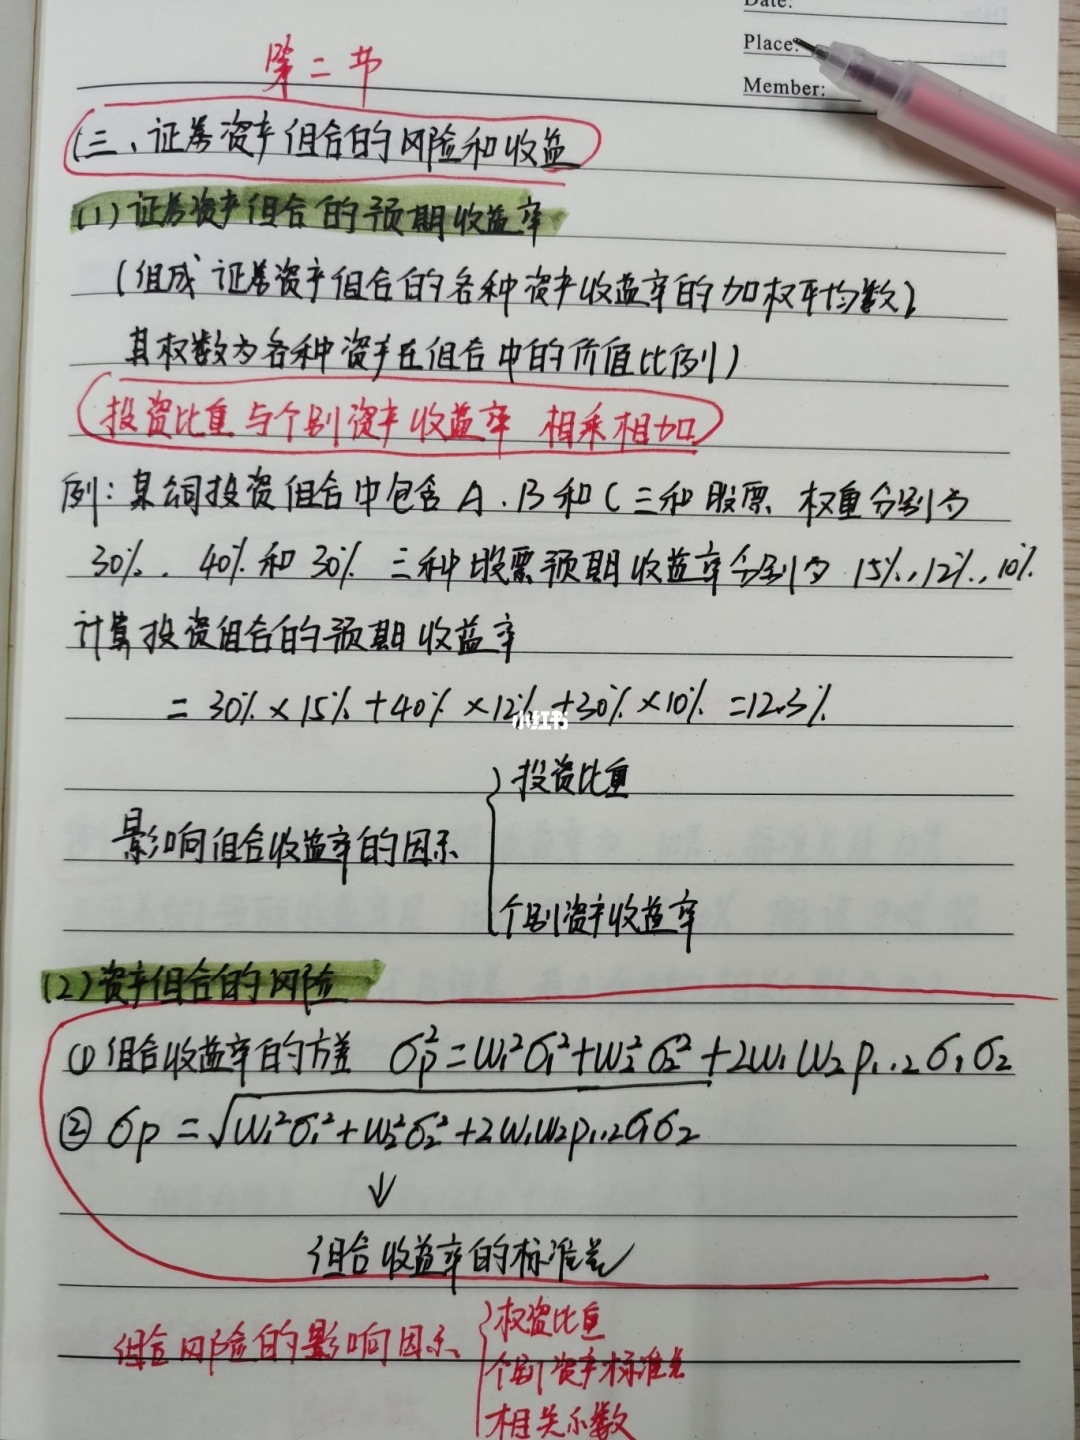 Date:
Place:
Member:
第二节
三、证券资产组合的风险和收益
(1)证券资产组合的预期收益率
(组成证券资产组合的各种资产收益率的加权平均数,
其权数为各种资产在组合中的价值比例)
投资比重与个别资产收益率 相乘相加
例:某公司投资组合中包含A.B和C三种股票.权重分别为
30%.40%和30% 三种股票预期收益率分别为15%,12%,10%
计算投资组合的预期收益率
=30%×15%+40%×12%+30%×10%=12.3%
小红书
投资比重
影响组合收益率的因系
个别资产收益率
(2)资产组合的风险
①组合收益率的方差 σp²=W₁²σ₁²+W₂²σ₂²+2W₁W₂ρ₁.₂σ₁σ₂
②σp=√W₁²σ₁²+W₂²σ₂²+2W₁W₂ρ₁.₂σ₁σ₂
↓
组合收益率的标准差
权资比重
组合风险的影响因系
个别资产标准差
相关系数